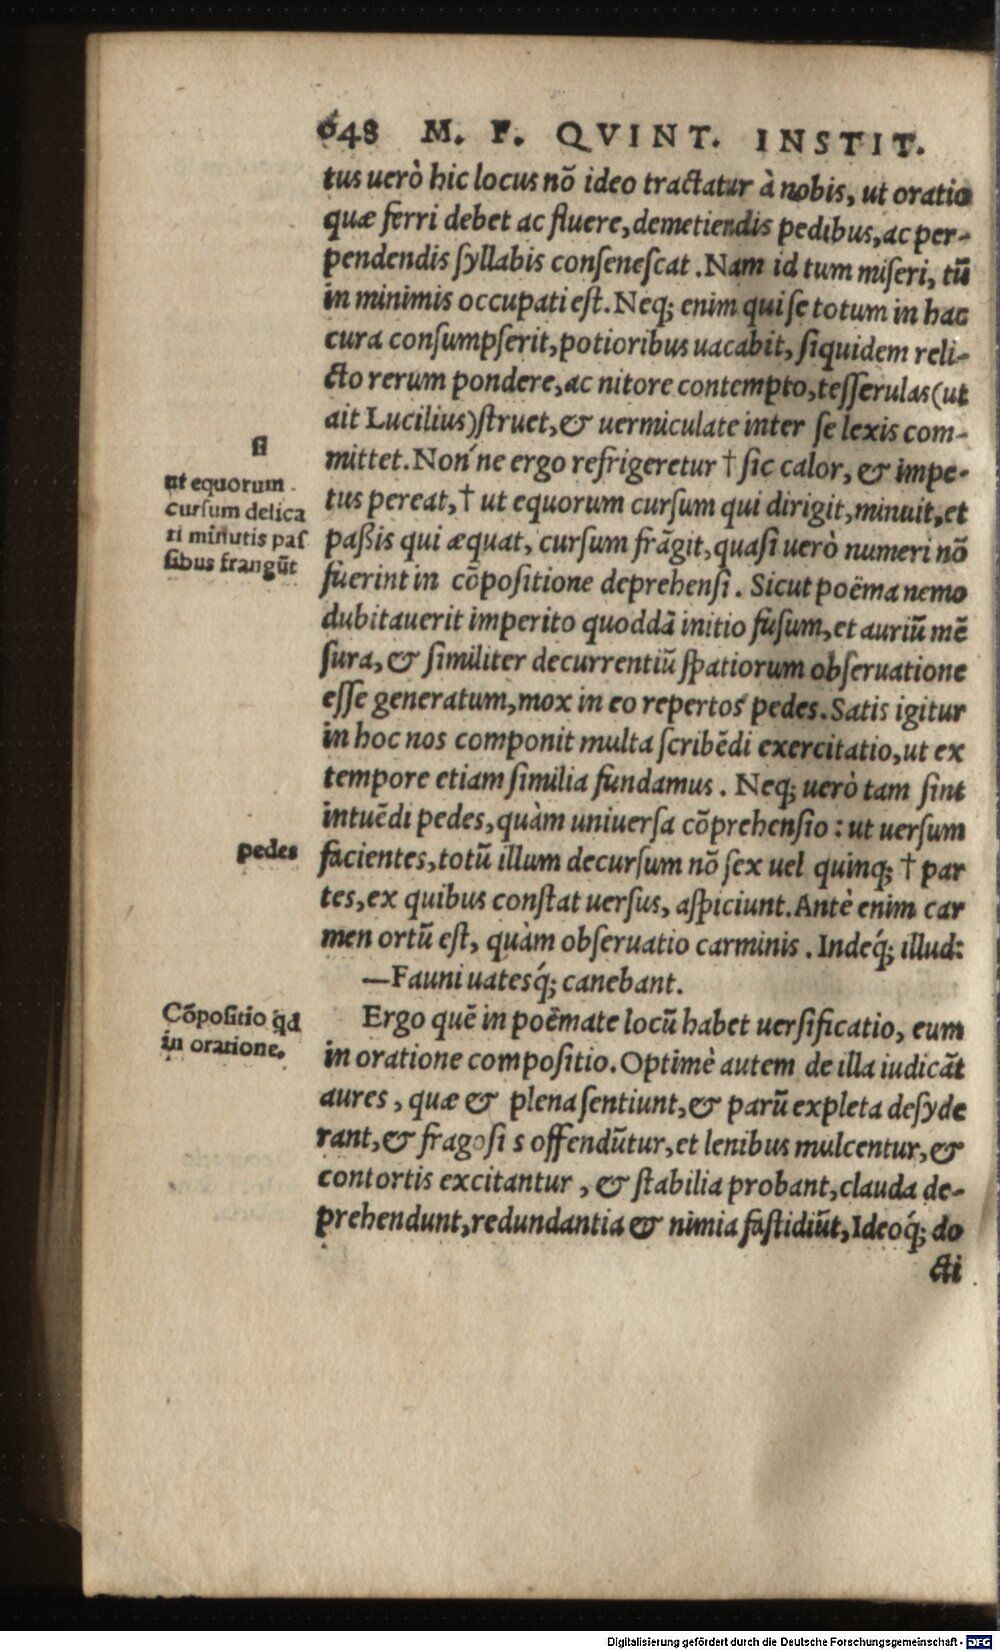 648 M. F. QVINT. INSTIT.
tus uerò hic locus nõ ideo tractatur à nobis, ut oratio
quæ ferri debet ac fluere, demetiendis pedibus, ac per-
pendendis syllabis consenescat. Nam id tum miseri, tũ
in minimis occupati est. Neq; enim qui se totum in hac
cura consumpserit, potioribus uacabit, siquidem reli-
cto rerum pondere, ac nitore contempto, tesserulas (ut
ait Lucilius) struet, & uermiculate inter se lexis com-
mittet. Non'ne ergo refrigeretur † sic calor, & impe-
tus pereat, † ut equorum cursum qui dirigit, minuit, et
paßis qui æquat, cursum frãgit, quasi uerò numeri nõ
fuerint in cõpositione deprehensi. Sicut poëma nemo
dubitauerit imperito quoddã initio fusum, et auriũ mẽ
sura, & similiter decurrentiũ spatiorum obseruatione
esse generatum, mox in eo repertos pedes. Satis igitur
in hoc nos componit multa scribẽdi exercitatio, ut ex
tempore etiam similia fundamus. Neq; uerò tam sint
intuẽdi pedes, quàm uniuersa cõprehensio: ut uersum
facientes, totũ illum decursum nõ sex uel quinq; † par
tes, ex quibus constat uersus, aspiciunt. Antè enim car
men ortũ est, quàm obseruatio carminis. Indeq́; illud:
—Fauni uatesq́; canebant.
Ergo quẽ in poëmate locũ habet uersificatio, eum
in oratione compositio. Optimè autem de illa iudicãt
aures, quæ & plena sentiunt, & parũ expleta desyde
rant, & fragosi s offendũtur, et lenibus mulcentur, &
contortis excitantur, & stabilia probant, clauda de-
prehendunt, redundantia & nimia fastidiũt, Ideoq́; do
cti
si
ut equorum
cursum delica
ti minutis pas
sibus frangũt
pedes
Cõpositio q̃d
in oratione.
Digitalisierung gefördert durch die Deutsche Forschungsgemeinschaft - DFG